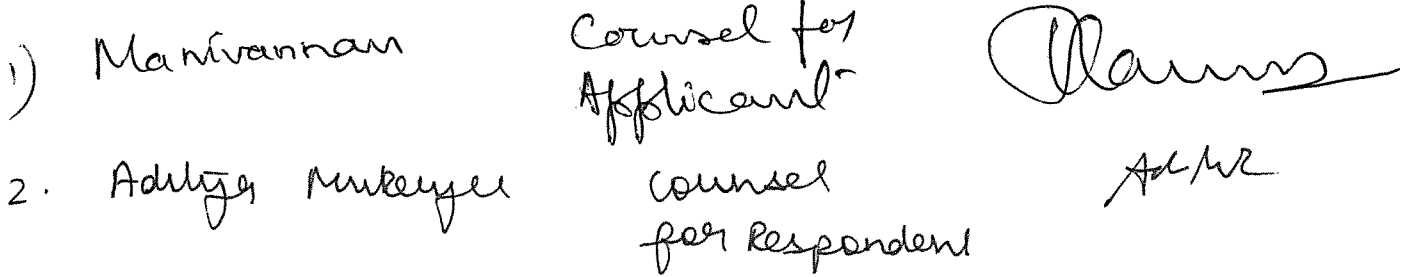 1) Manivannan Counsel for
Applicant
2. Aditya Mukerjee counsel
for Respondent